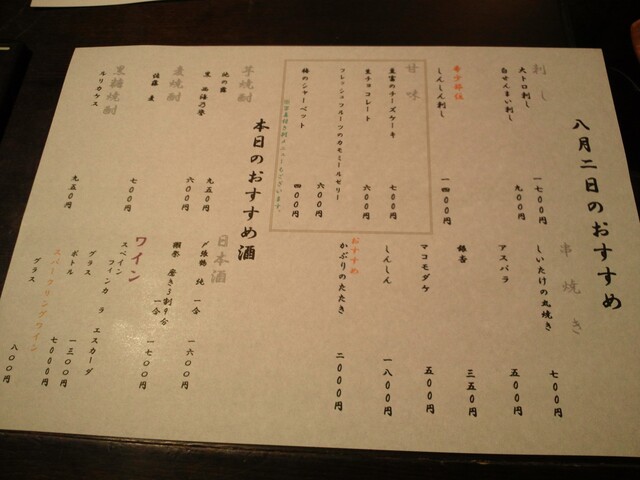 八月二日のおすすめ
刺し
大トロ刺し 一七〇〇円
白せんまい刺し 九〇〇円
希少部位
しんしん刺し 一四〇〇円
甘味
濃厚のチーズケーキ 七〇〇円
生チョコレート 六〇〇円
フレッシュフルーツのカモミールゼリー 六〇〇円
梅のシャーベット 四〇〇円
串焼き
しいたけの丸焼き 七〇〇円
アスパラ 五〇〇円
銀杏 三五〇円
マコモダケ 五〇〇円
しんしん 一八〇〇円
おすすめ
かぶりのたたき 二〇〇〇円
本日のおすすめ酒
芋焼酎
池の露 九五〇円
黒 西海乃誉 六〇〇円
麦焼酎
佐藤 麦 七〇〇円
黒糖焼酎
ルリカケス 九五〇円
日本酒
〆張鶴 純 一合 一六〇〇円
獺祭 磨き3割9分 一合 一七〇〇円
ワイン
スペイン
フィンカ ラ エスカーダ
グラス 一三〇〇円
ボトル 七〇〇〇円
スパークリングワイン
グラス 八〇〇円